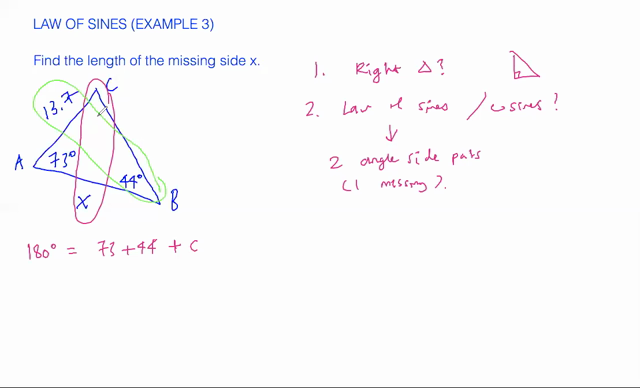 LAW OF SINES (EXAMPLE 3)
Find the length of the missing side x.
C
13.7
A
73°
44°
B
X
180° = 73 + 44 + C
1. Right △?
2. Law of sines / cosines?
↓
2 angle side pairs
(1 missing).